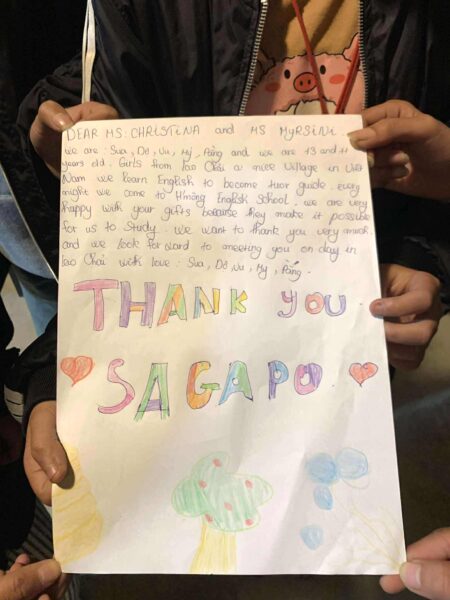 DEAR MS. CHRISTINA and MS MYRSINI.
We are: Sua, Dở, Vu, My, Pằng and we are 13 and 11
years old. Girls from Lao Chải a nice village in Viet
Nam we learn English to become tuor guide. every
night we come to H'mông English School. we are very
happy with your gifts because they make it possible
for us to study. we want to thank you very much.
and we look for ward to meeting you on day in
Lao Chải with love: Sua, Dở, Vu, My, Pằng.
THANK YOU.
SAGAPO.